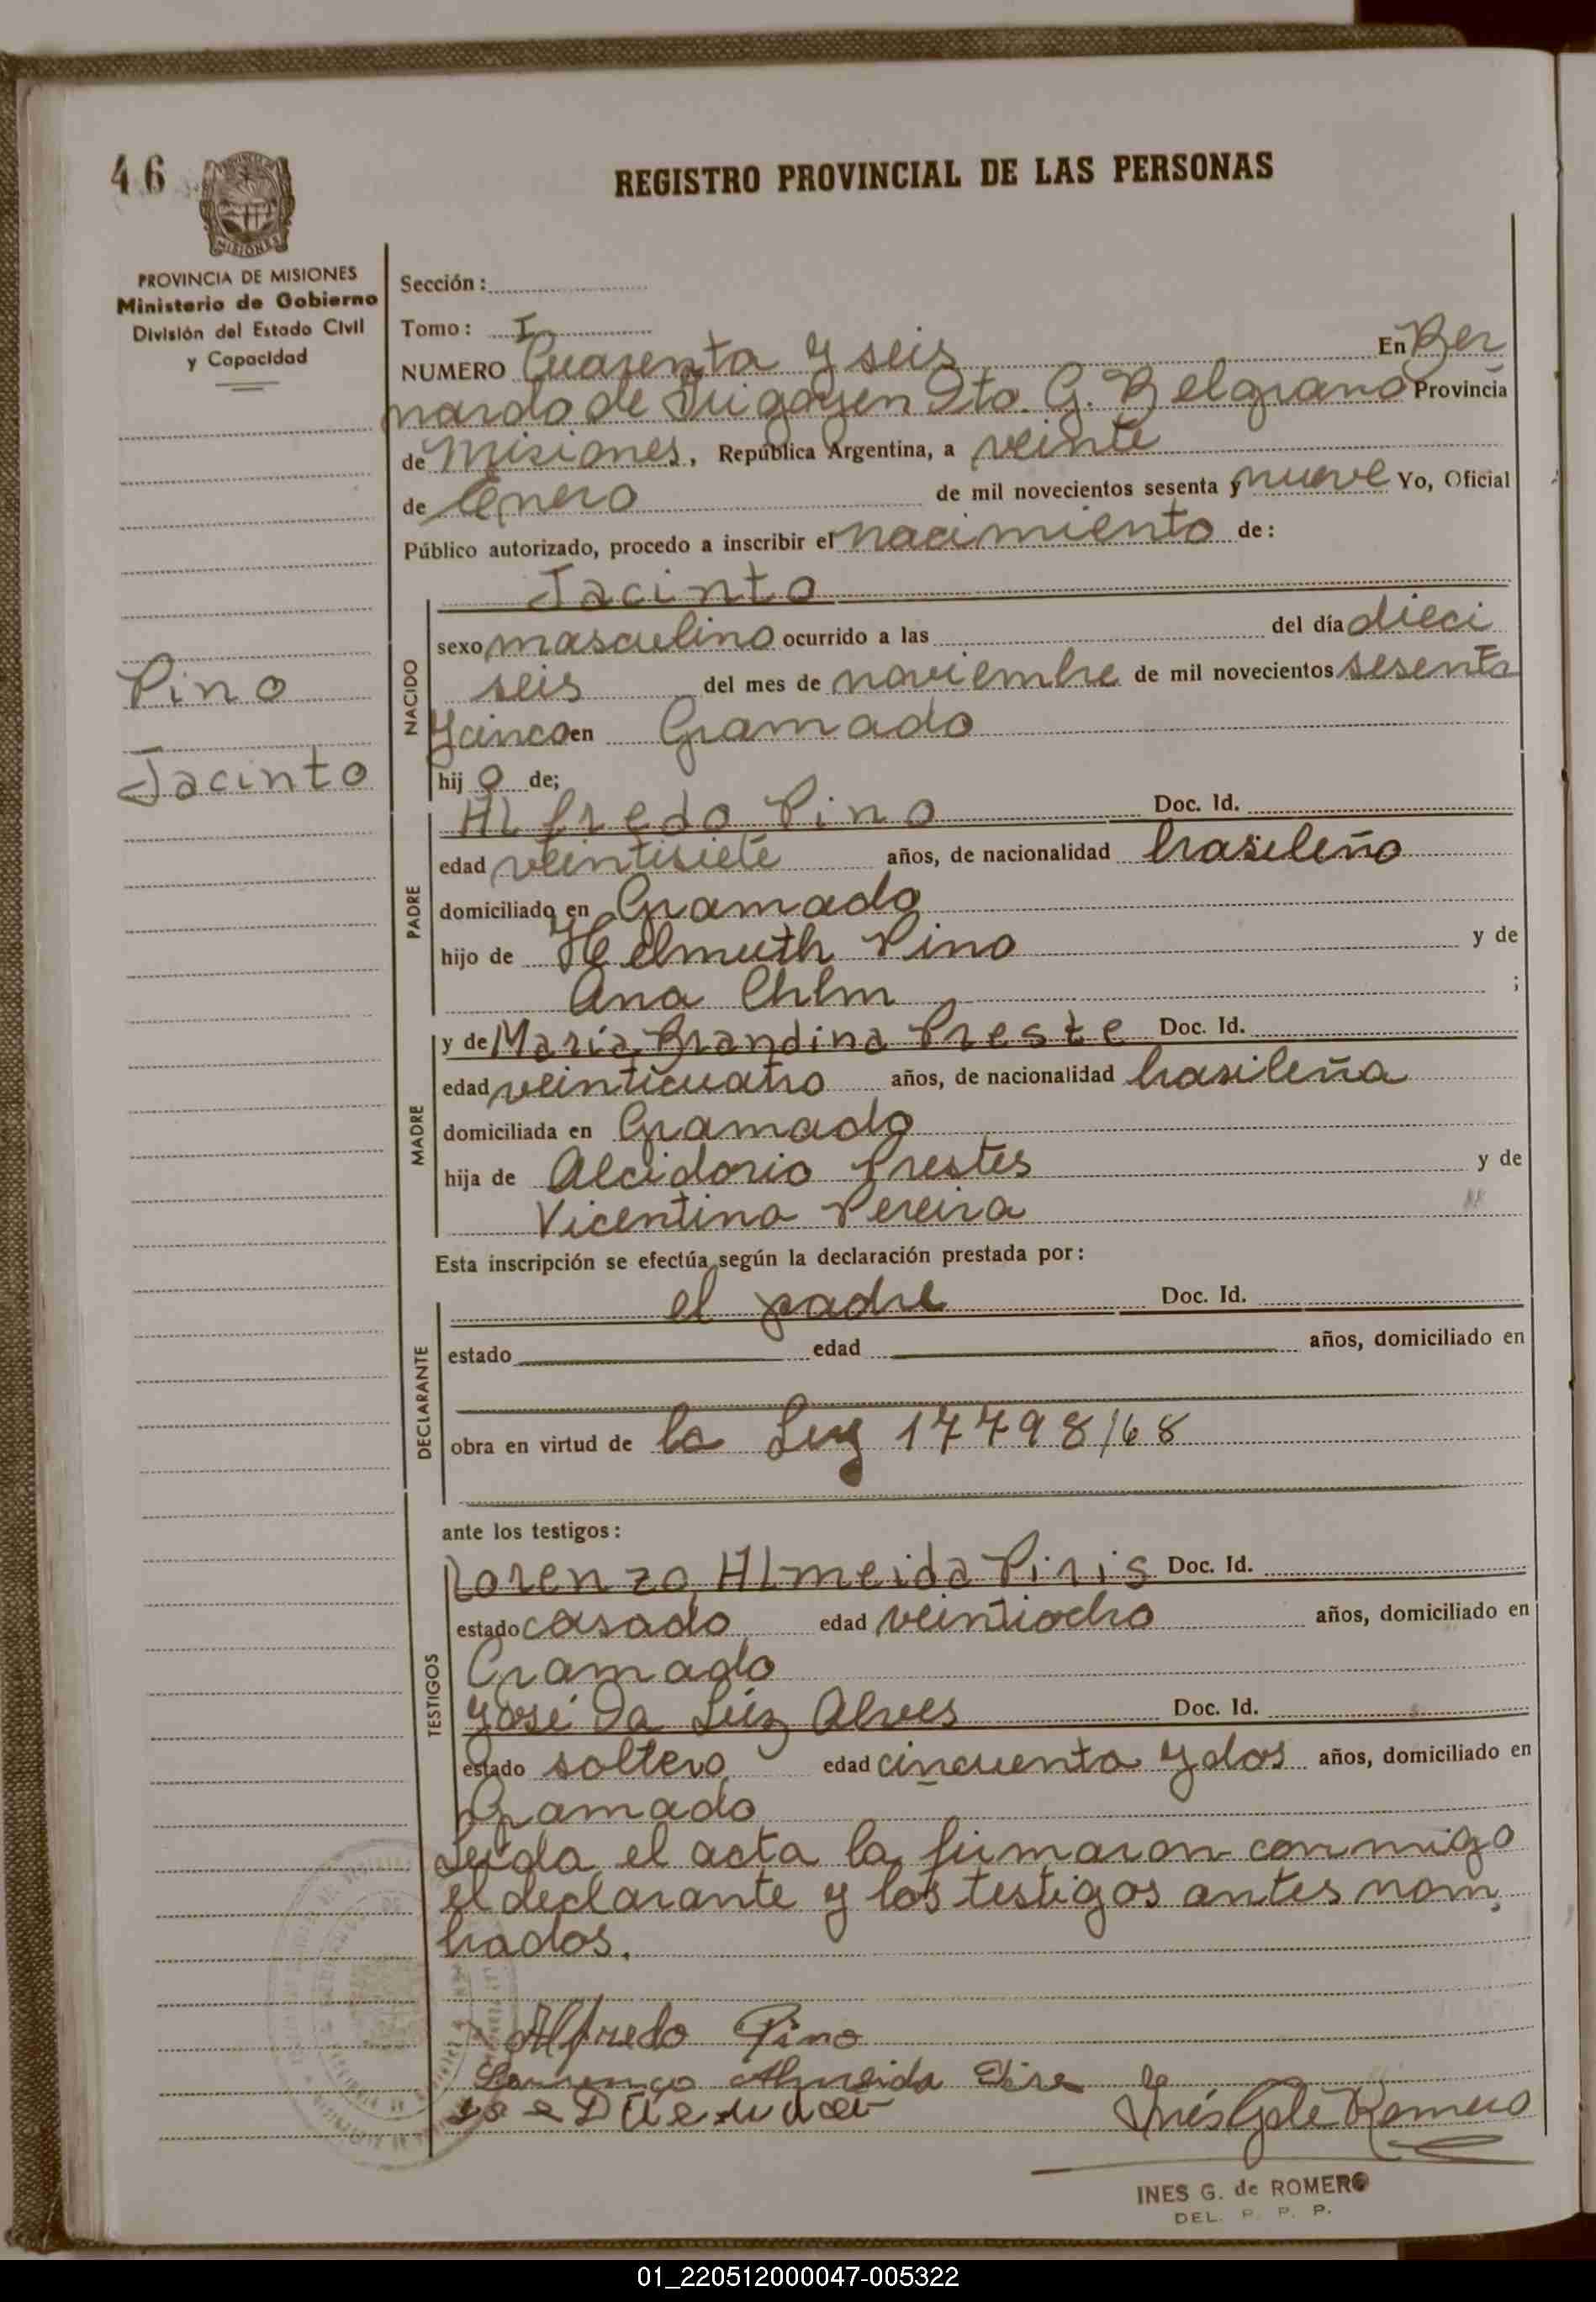 46
REGISTRO PROVINCIAL DE LAS PERSONAS
MISIONES
PROVINCIA DE MISIONES
Ministerio de Gobierno
División del Estado Civil
y Capacidad
Pino
Jacinto
Sección:
Tomo: I
NUMERO Cuarenta y seis En Ber
nardo de Irigoyen Dto. G. Belgrano Provincia
de Misiones, República Argentina, a veinte
de Enero de mil novecientos sesenta y nueve Yo, Oficial
Público autorizado, procedo a inscribir el nacimiento de:
NACIDO
Jacinto
sexo masculino ocurrido a las del día dieci
seis del mes de noviembre de mil novecientos sesenta
y cinco en Gramado
hij o de;
PADRE
Alfredo Pino Doc. Id.
edad veintisiete años, de nacionalidad brasileño
domiciliado en Gramado
hijo de Helmuth Pino y de
Ana Chlm ;
MADRE
y de María Brandina Preste Doc. Id.
edad veinticuatro años, de nacionalidad brasileña
domiciliada en Gramado
hija de Alcidorio Prestes y de
Vicentina Pereira
Esta inscripción se efectúa según la declaración prestada por:
DECLARANTE
el padre Doc. Id.
estado edad años, domiciliado en
obra en virtud de la Ley 17798/68
ante los testigos:
TESTIGOS
Lorenzo Almeida Piris Doc. Id.
estado casado edad veintiocho años, domiciliado en
Gramado
José Da Luz Alves Doc. Id.
estado soltero edad cincuenta y dos años, domiciliado en
Gramado
Leida el acta la firmaron conmigo
el declarante y los testigos antes nom
brados.
Alfredo Pino
Almeida
Inés G. de Romero
INES G. de ROMERO
DEL. P. P. P.
01_220512000047-005322